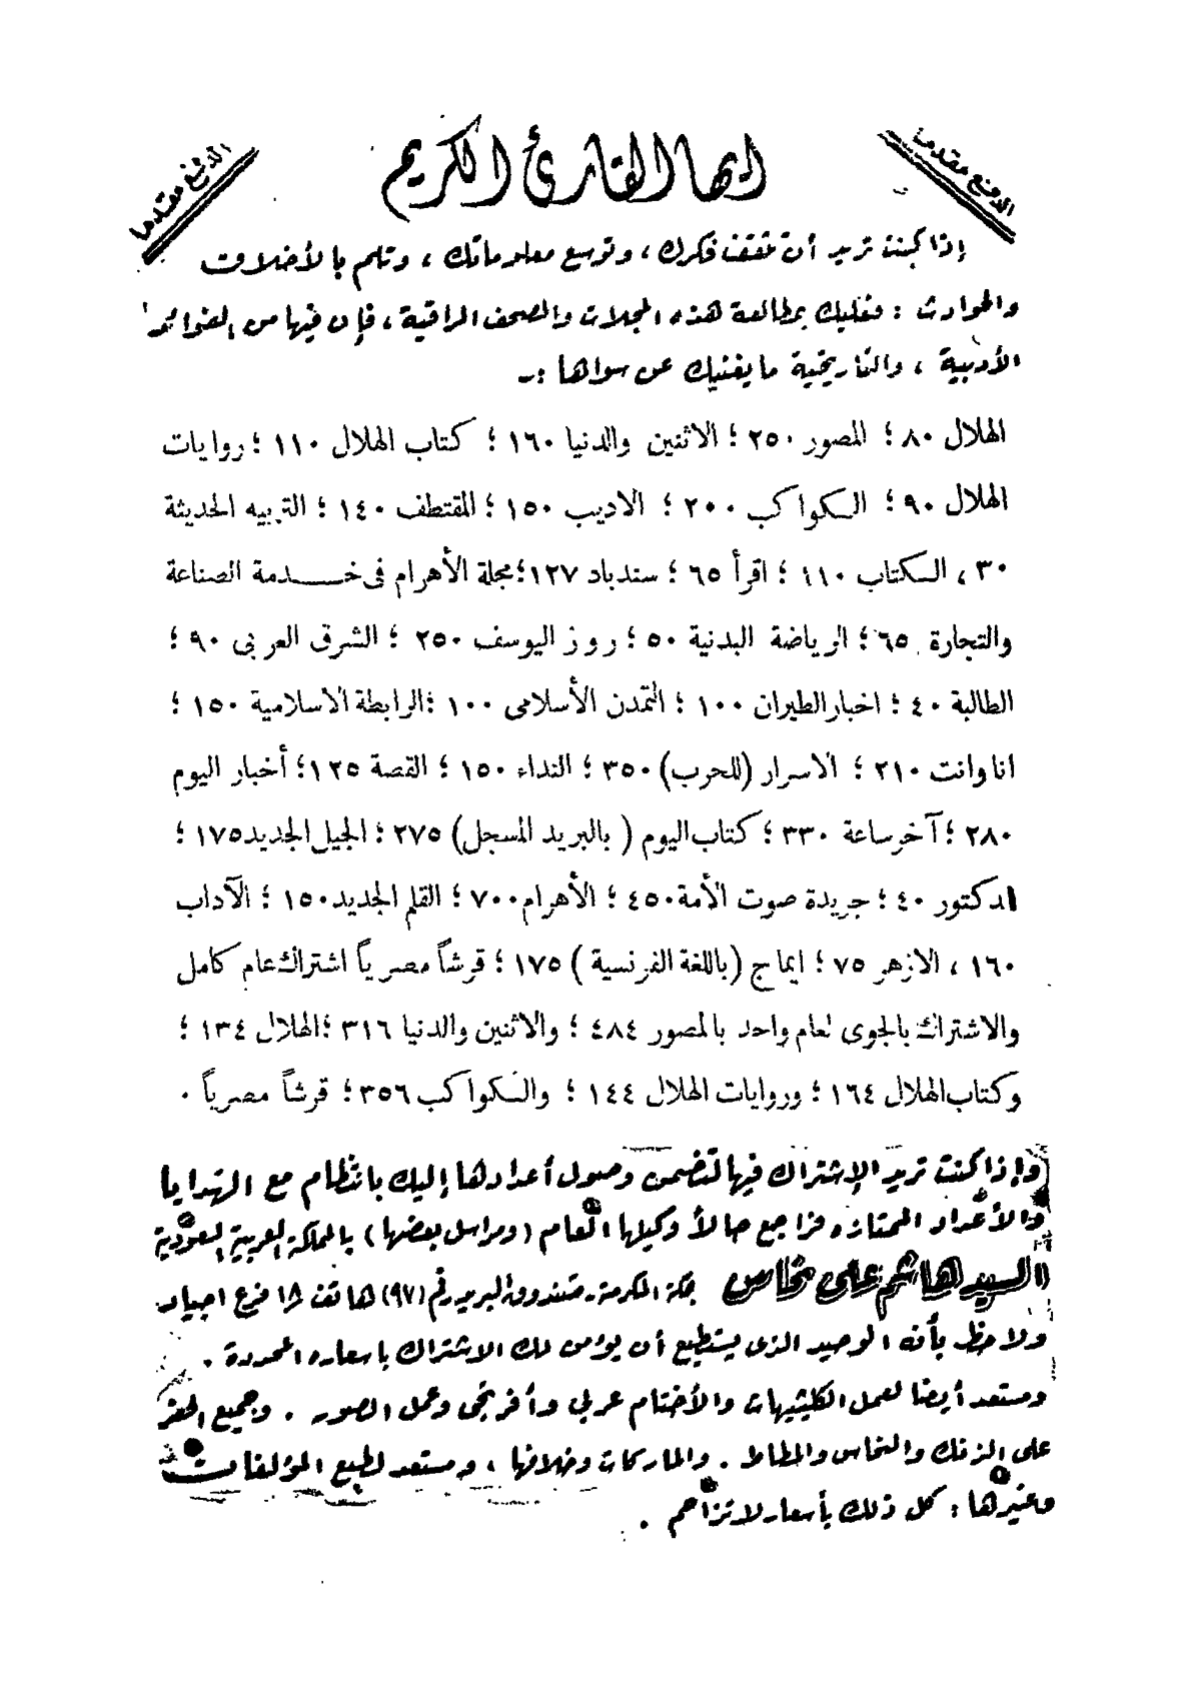 الدفع مقدما
ايها القارئ الكريم
الدفع مقدما
إذا كنت تريد أن تثقف فكرك، وتوسع معلوماتك، وتلم بالأخلاق
والحوادث : فعليك بمطالعة هذه المجلات والصحف الراقية، فإن فيها من الفوائد
الأدبية، والتاريخية ما يغنيك عن سواها :ـ
الهلال ٨٠ ؛ المصور ٢٥٠ ؛ الاثنين والدنيا ١٦٠ ؛ كتاب الهلال ١١٠ ؛ روايات
الهلال ٩٠ ؛ الكواكب ٢٠٠ ؛ الاديب ١٥٠ ؛ المقتطف ١٤٠ ؛ التربيه الحديثة
٣٠ ، الكتاب ١١٠ ؛ اقرأ ٦٥ ؛ سندباد ١٢٧ ؛ مجلة الأهرام فى خـــدمة الصناعة
والتجارة ٦٥ ؛ الرياضة البدنية ٥٠ ؛ روز اليوسف ٢٥٠ ؛ الشرق العربى ٩٠ ؛
الطالبة ٤٠ ؛ اخبار الطيران ١٠٠ ؛ التمدن الأسلامى ١٠٠ ؛ الرابطة الاسلامية ١٥٠ ؛
انا وانت ٢١٠ ؛ الاسرار (للحرب) ٣٥٠ ؛ النداء ١٥٠ ؛ القصة ١٢٥ ؛ أخبار اليوم
٢٨٠ ؛ آخر ساعة ٣٣٠ ؛ كتاب اليوم ( بالبريد المسجل) ٢٧٥ ؛ الجيل الجديد ١٧٥ ؛
الدكتور ٤٠ ؛ جريدة صوت الأمة ٤٥٠ ؛ الأهرام ٧٠٠ ؛ القلم الجديد ١٥٠ ؛ الآداب
١٦٠ ، الازهر ٧٥ ؛ ايماج (باللغة الفرنسية ) ١٧٥ ؛ قرشاً مصرياً اشتراك عام كامل
والاشتراك بالجوى لعام واحد بالمصور ٤٨٤ ؛ والاثنين والدنيا ٣١٦ ؛ الهلال ١٣٤ ؛
وكتاب الهلال ١٦٤ ؛ وروايات الهلال ١٤٤ ؛ والكواكب ٣٥٦ ؛ قرشاً مصرياً .
وإذا كنت تريد الإشتراك فيها لتضمن وصول أعدادها إليك بانتظام مع الهدايا
والأعداد الممتازه فراجع حالاً وكيلها العام (ومراسل بعضها) بالمملكة العربية السعودية
السيد هاشم على نحاس بمكة المكرمة ـ صندوق البريد رقم (٩٧) هاتف فرع اجياد
ولاحظ بأنه الوحيد الذى يستطيع أن يؤمن لك الاشتراك بأسعاره المحدودة .
ومستعد أيضا لعمل الكليشيهات والأختام عربي وأفرنجى وعمل الصور . وجميع الحفر
على الزنك والنحاس والمطاط . والماركات وخلافها ، ومستعد لطبع المؤلفات
وغيرها : كل ذلك بأسعار لا تزاحم .